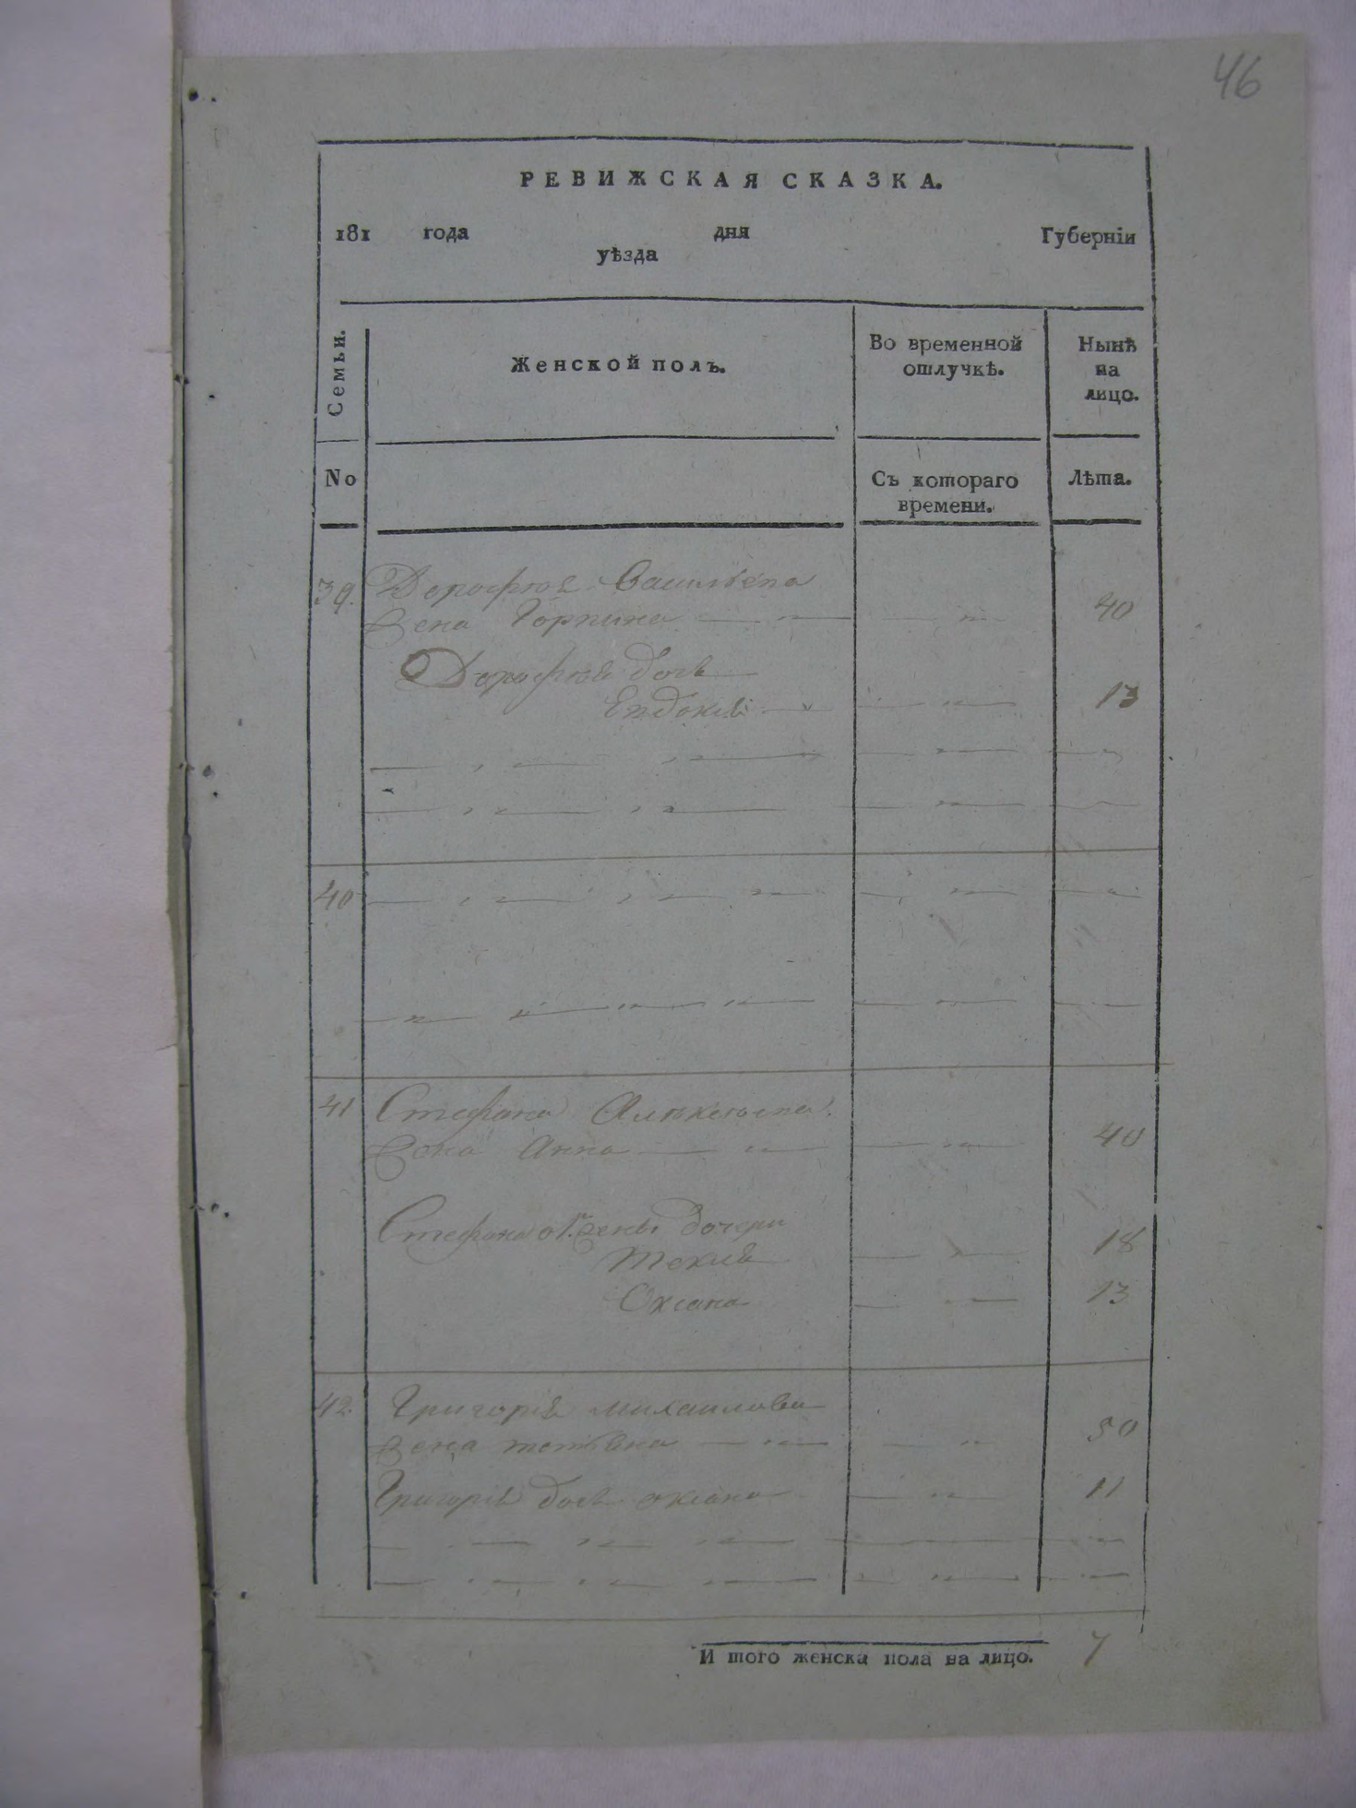 46
РЕВИЖСКАЯ СКАЗКА.
181 года дня Губерніи
уѣзда
Семьи. Женской полъ. Во временной отлучкѣ. Нынѣ на лицо.
No Съ котораго времени. Лѣта.
39. Дорофея Васильева
жена Горпина 40
Дорофея дочь
Евдокия 13
40
41 Стефана Алексеева
жена Анна 40
Стефана от 1й жены дочери
Текля 18
Оксана 13
42. Григория Михаилова
жена Татьяна 50
Григория дочь Оксана 11
И того женска пола на лицо. 7